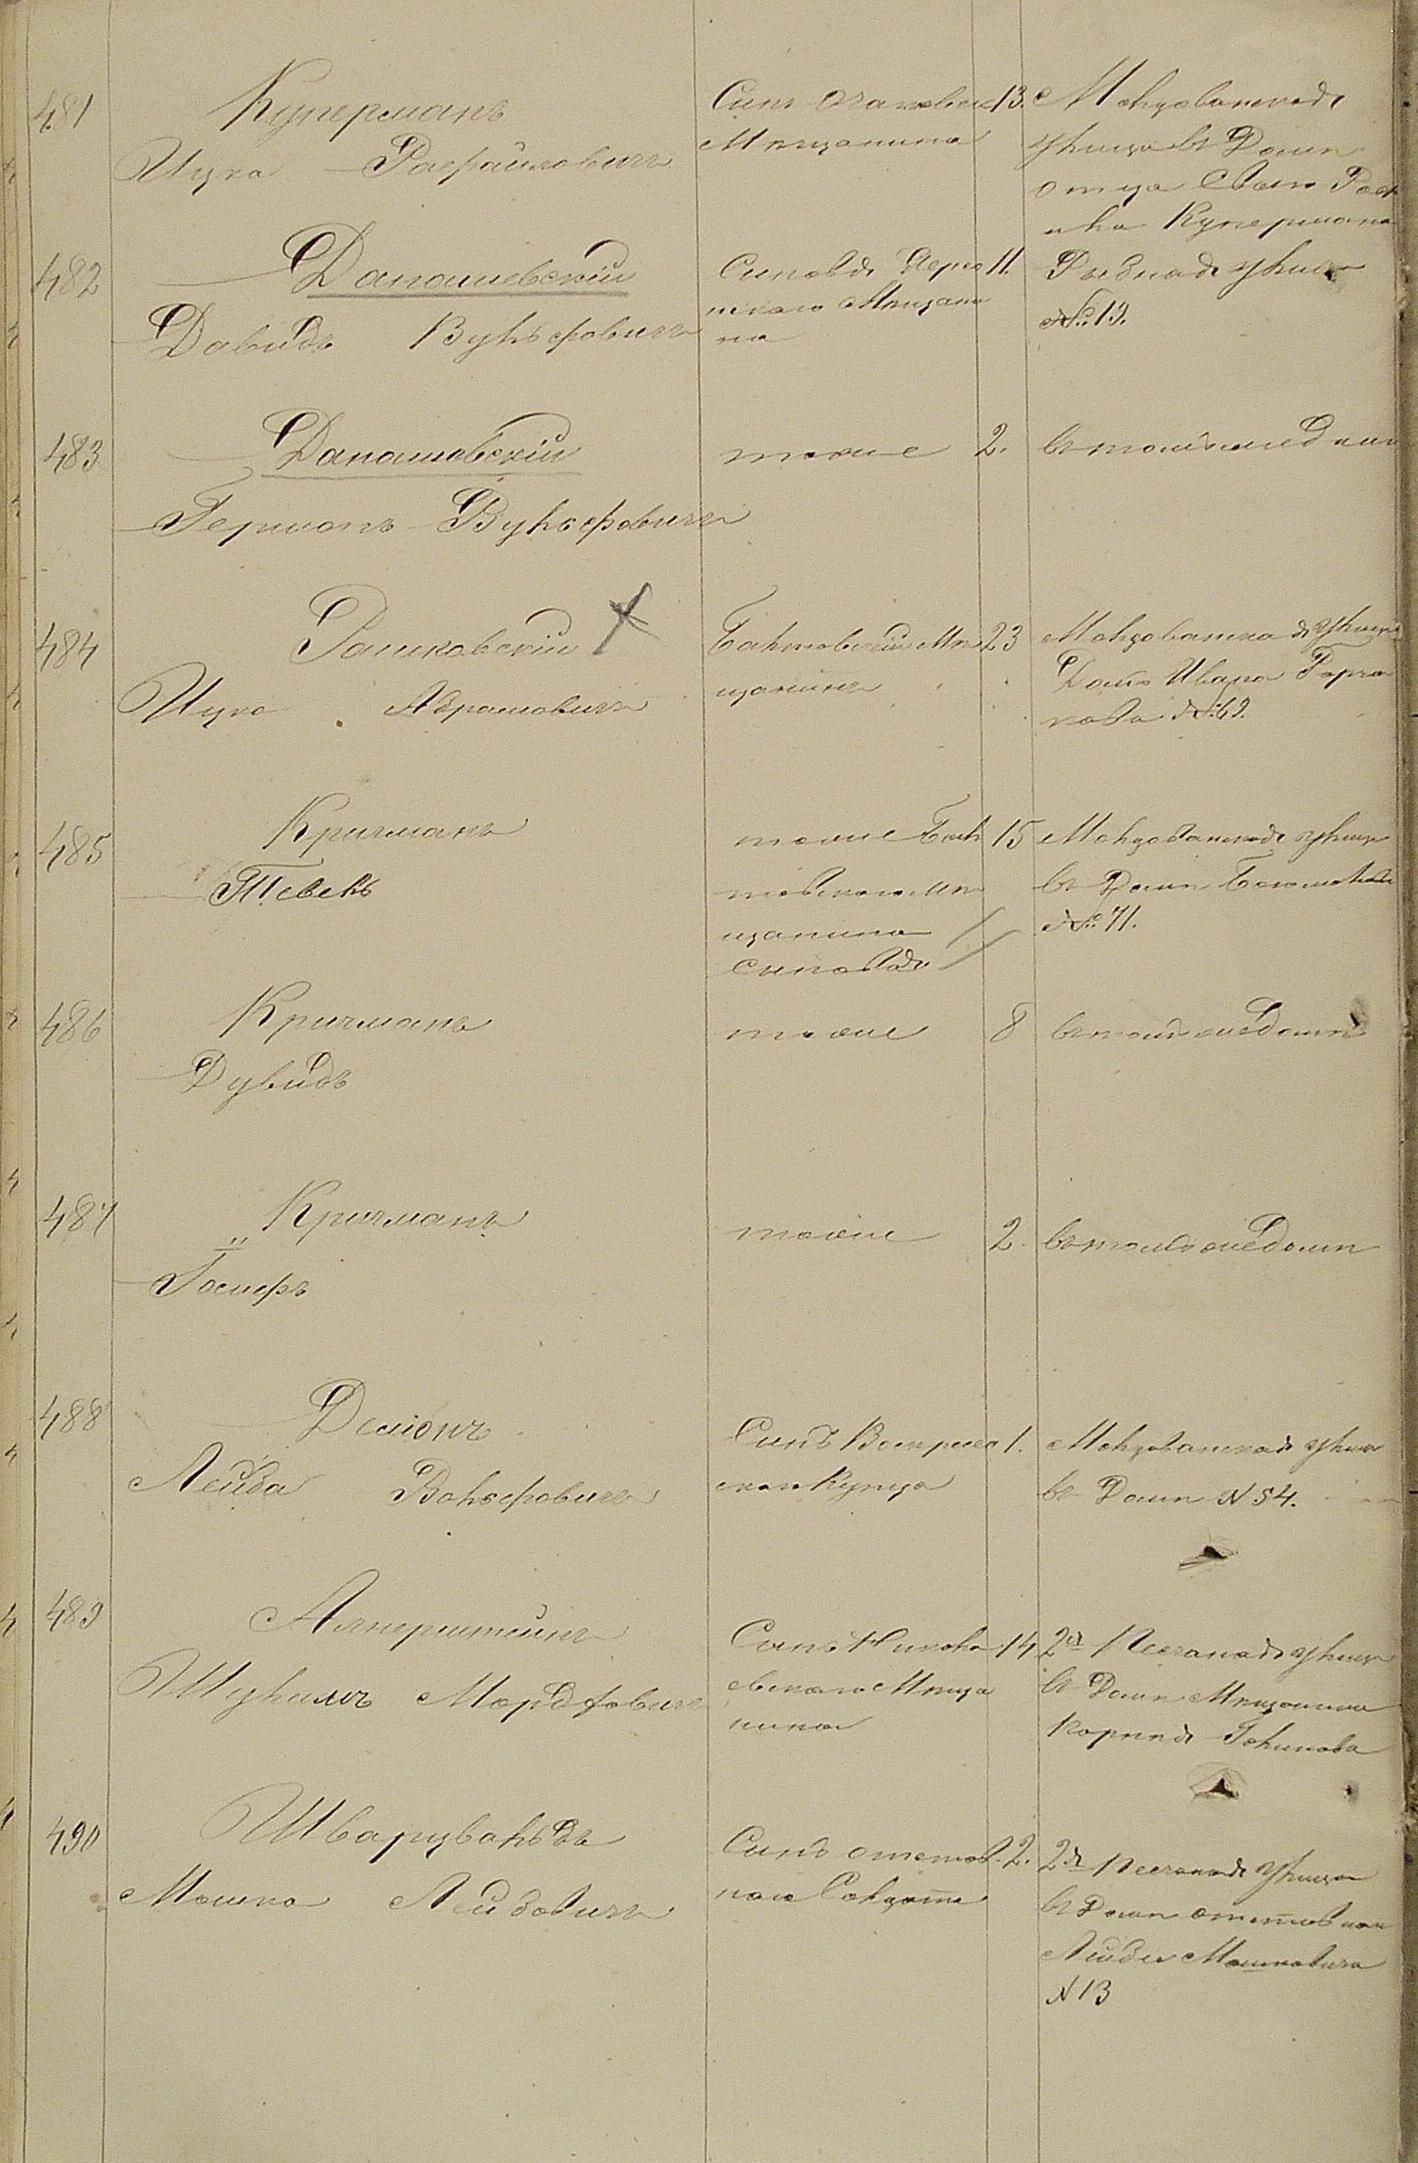 481
Куперманъ
Ицко Рафаиловичъ
Сынъ Очаковска
Мѣщанина
13.
Молдованская
улица въ Домѣ
отца Свого Рафа
ила Купермана
482
Данашевскій
Давидъ Вульфовичъ
Сыновья
скаго Мѣщани
на
11.
Рыбная улица
№ 19.
483
Данашевскій
Германъ Вульфовичъ
тоже
2.
въ томъ же домѣ
484
Рашковскій
Ицко Абрамовичъ
Балтовскій Мѣ
щанинъ
23
Молдованская улица
Домъ Ивана Горча
кова № 62.
485
Кричманъ
Тевель
тоже Бал
товскаго мѣ
щанина
сыновья
15
Молдованская улица
въ Домѣ
№ 71.
486
Кричманъ
Дувидъ
тоже
8
въ томъ же домѣ
487
Кричманъ
Іосифъ
тоже
2.
въ томъ же домѣ
488
Деліонъ
Лейба Вольфовичъ
Сынъ Воскресен
скаго Купца
1.
Молдованская улица
въ Домѣ N 54.
489
Альперштейнъ
Шулимъ Мордковичъ
Сынъ Никола
евскаго Мѣща
нина
14
2я Песчаная улица
въ Домѣ Мѣщанина
Корнѣя
490
Шварцвальдъ
Мошко Лейбовичъ
Сынъ отстав.
наго Солдата
2.
2я Песчаная Улица
въ Домѣ отставнаго
Лейбы Мошковича
N 13